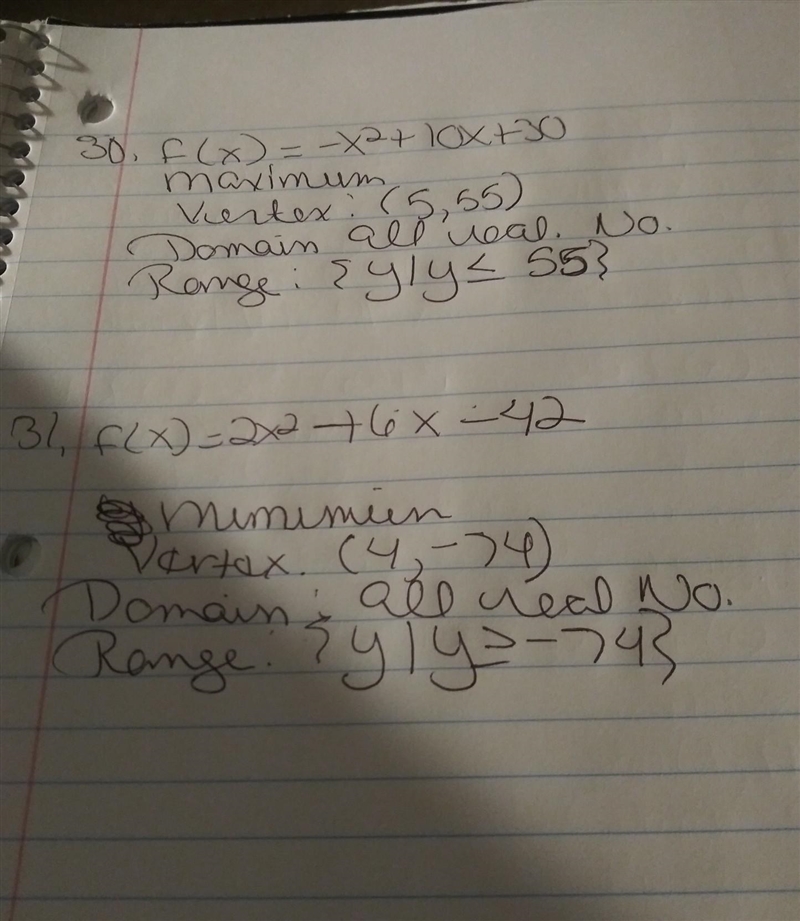 30. f(x) = -x² + 10x + 30
maximum
Vertex: (5, 55)
Domain all real. No.
Range: {y | y ≤ 55}
31. f(x) = 2x² - +6x - 42
Minimum
Vertax. (4, -74)
Domain: all real No.
Range: {y | y ≥ -74}